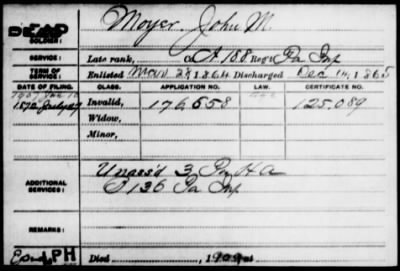 DEAD
SOLDIER:
Moyer, John M.
SERVICE:
Late rank, Co A 188 Reg't Pa Inf
TERM OF SERVICE:
Enlisted 28 1864 Discharged Dec 14, 1865
DATE OF FILING.
CLASS.
APPLICATION NO.
LAW.
CERTIFICATE NO.
1872 July
Invalid,
176558
125,089
Widow,
Minor,
ADDITIONAL SERVICES:
Unass'd 3 Pa H A
136 Pa Inf
REMARKS:
PH
Died